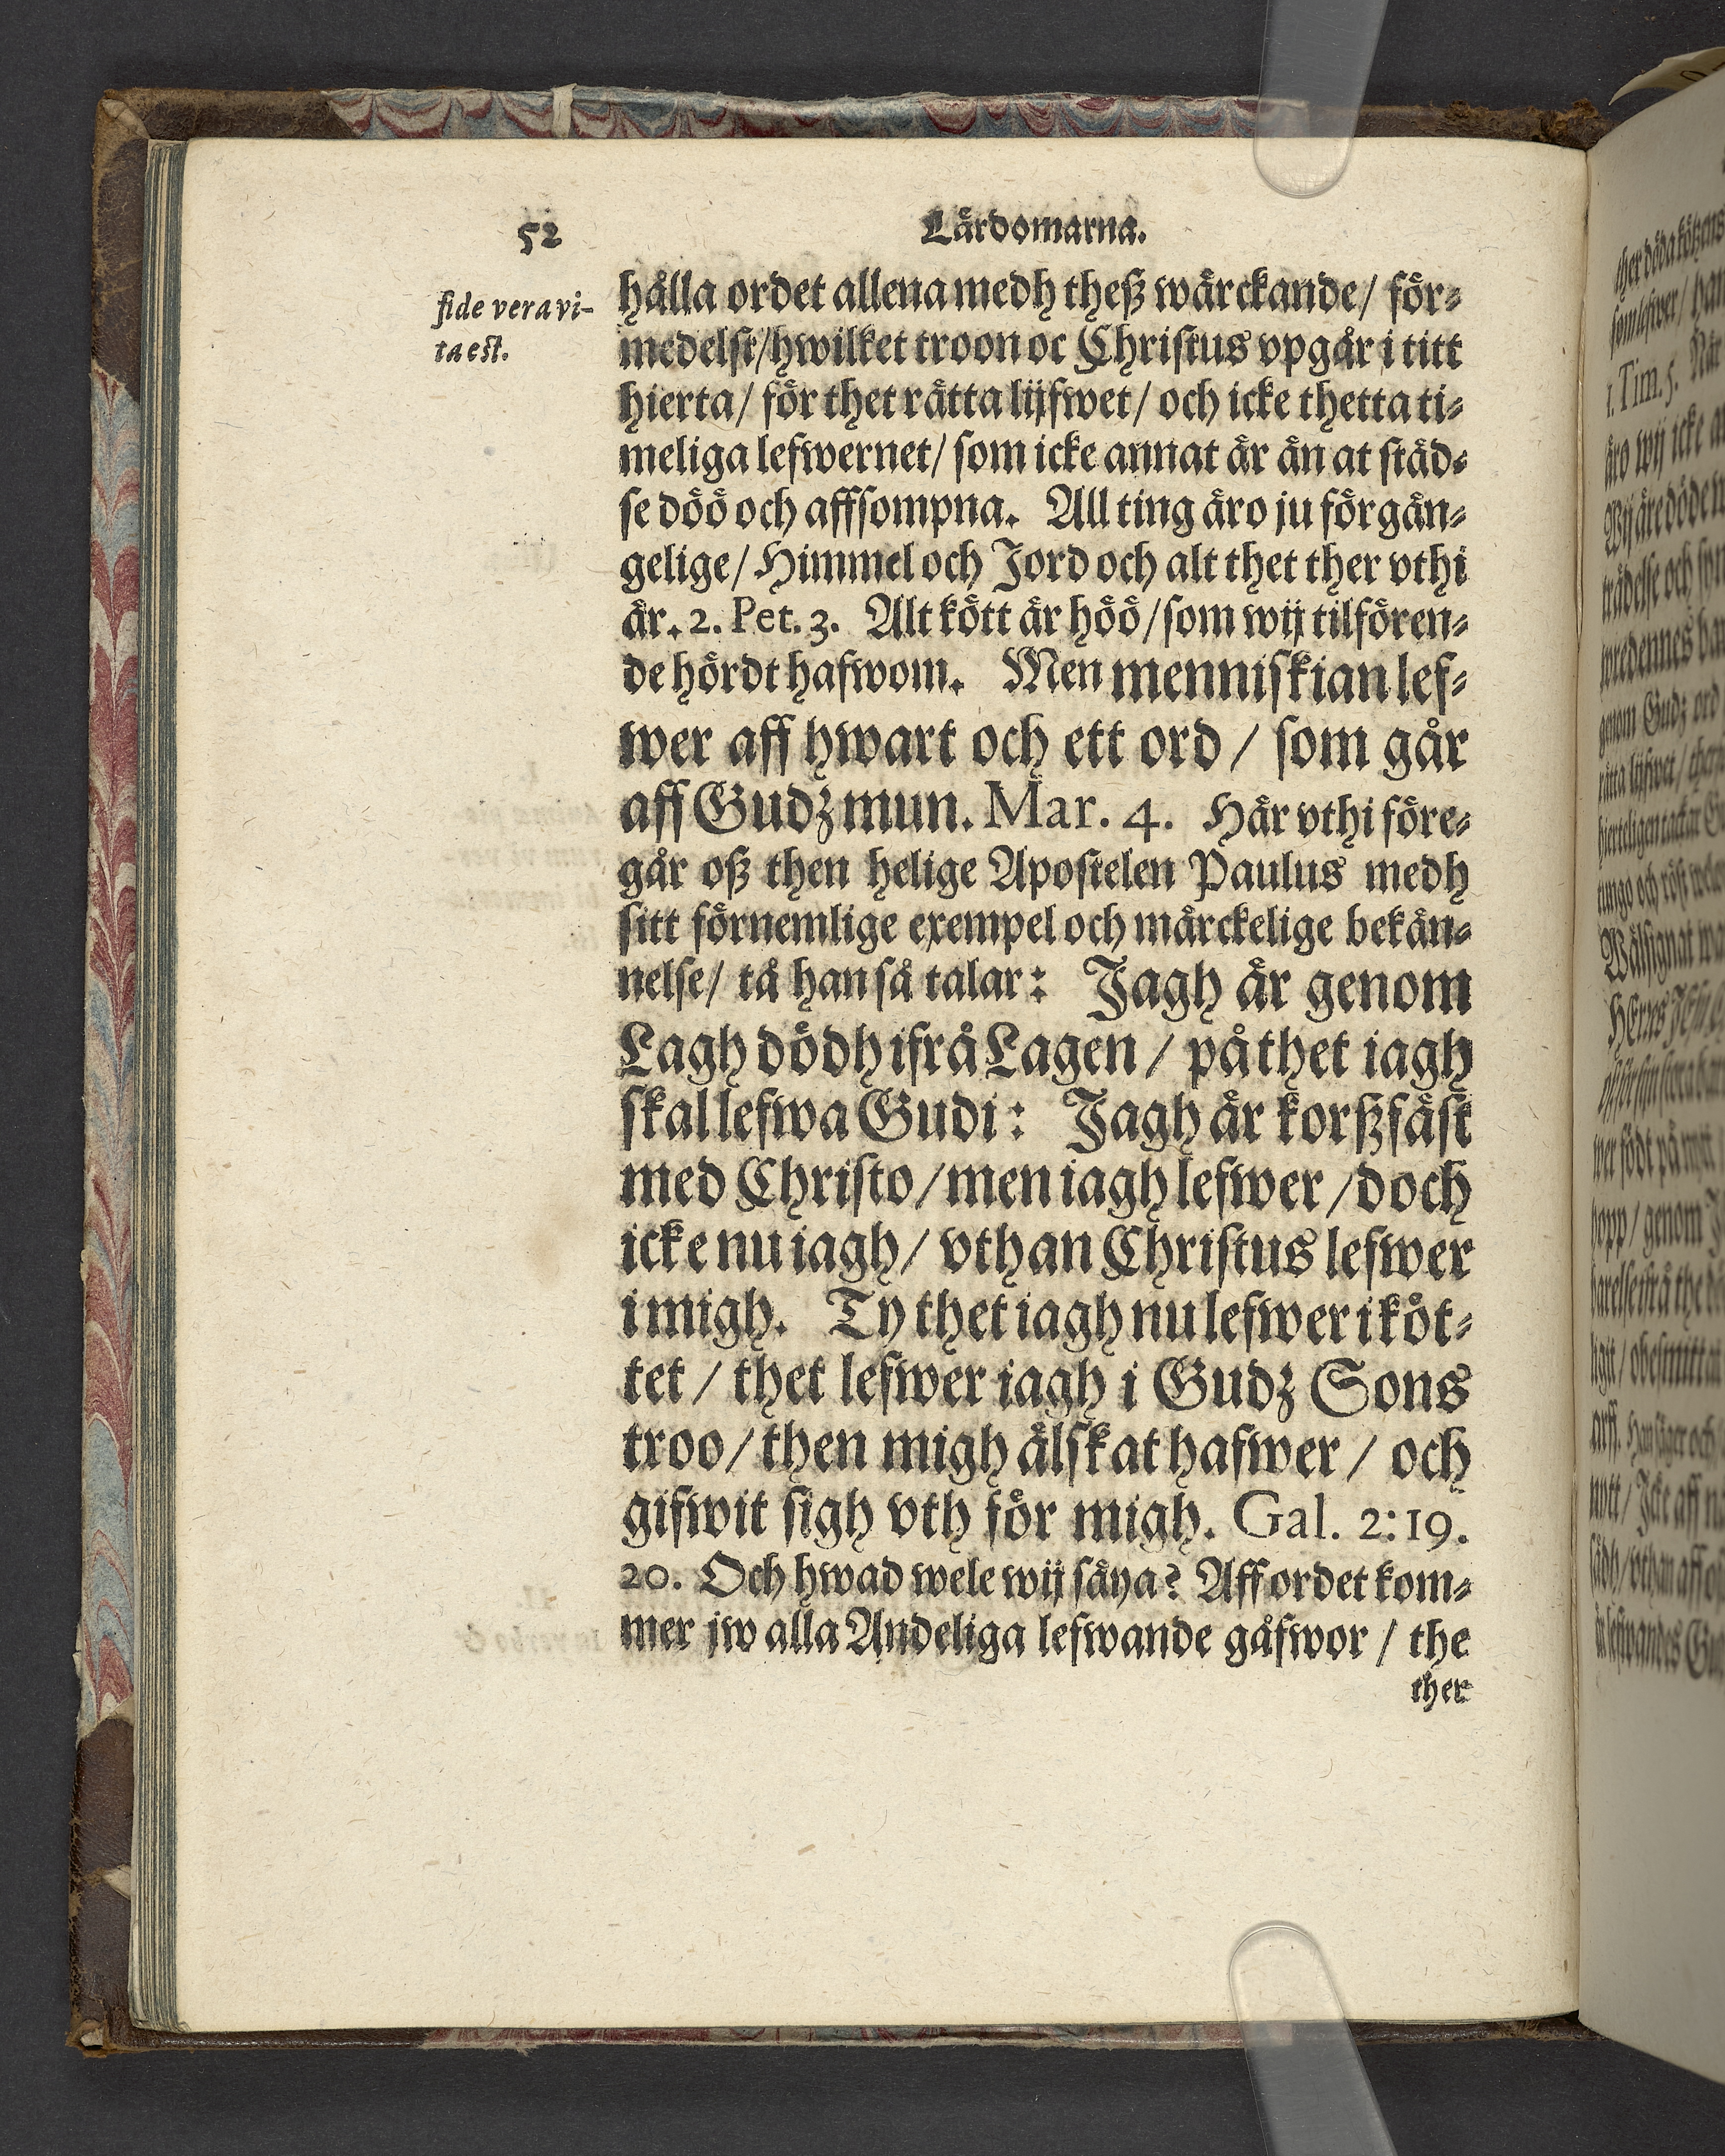 52
Lärdomarna.
fide vera vi-
ta est.
hålla ordet allena medh theß wärckande/ för-
medelst/hwilket troon oc Christus vpgår i titt
hierta/ för thet rätta lijfwet/ och icke thetta ti-
meliga lefwernet/ som icke annat är än at städ-
se döö och affsompna. All ting äro ju förgän-
gelige/ Himmel och Jord och alt thet ther vthi
är. 2. Pet. 3. Alt kött är höö/som wij tilfören-
de hördt hafwom. Men menniskian lef-
wer aff hwart och ett ord/ som går
aff Gudz mun. Mar. 4. Här vthi före-
går oß then helige Apostelen Paulus medh
sitt förnemlige exempel och märckelige bekän-
nelse/ tå han så talar: Jagh är genom
Lagh dödh ifrå Lagen/ på thet iagh
skal lefwa Gudi: Jagh är korßfäst
med Christo/men iagh lefwer/doch
icke nu iagh/ vthan Christus lefwer
i migh. Ty thet iagh nu lefwer i köt-
tet/ thet lefwer iagh i Gudz Sons
troo/then migh älskat hafwer/ och
gifwit sigh vth för migh. Gal. 2:19.
20. Och hwad wele wij säya? Aff ordet kom-
mer jw alla Andeliga lefwande gåfwor/ the
ther
1. Tim. 5. När
äro wij icke
genom Gudz ord